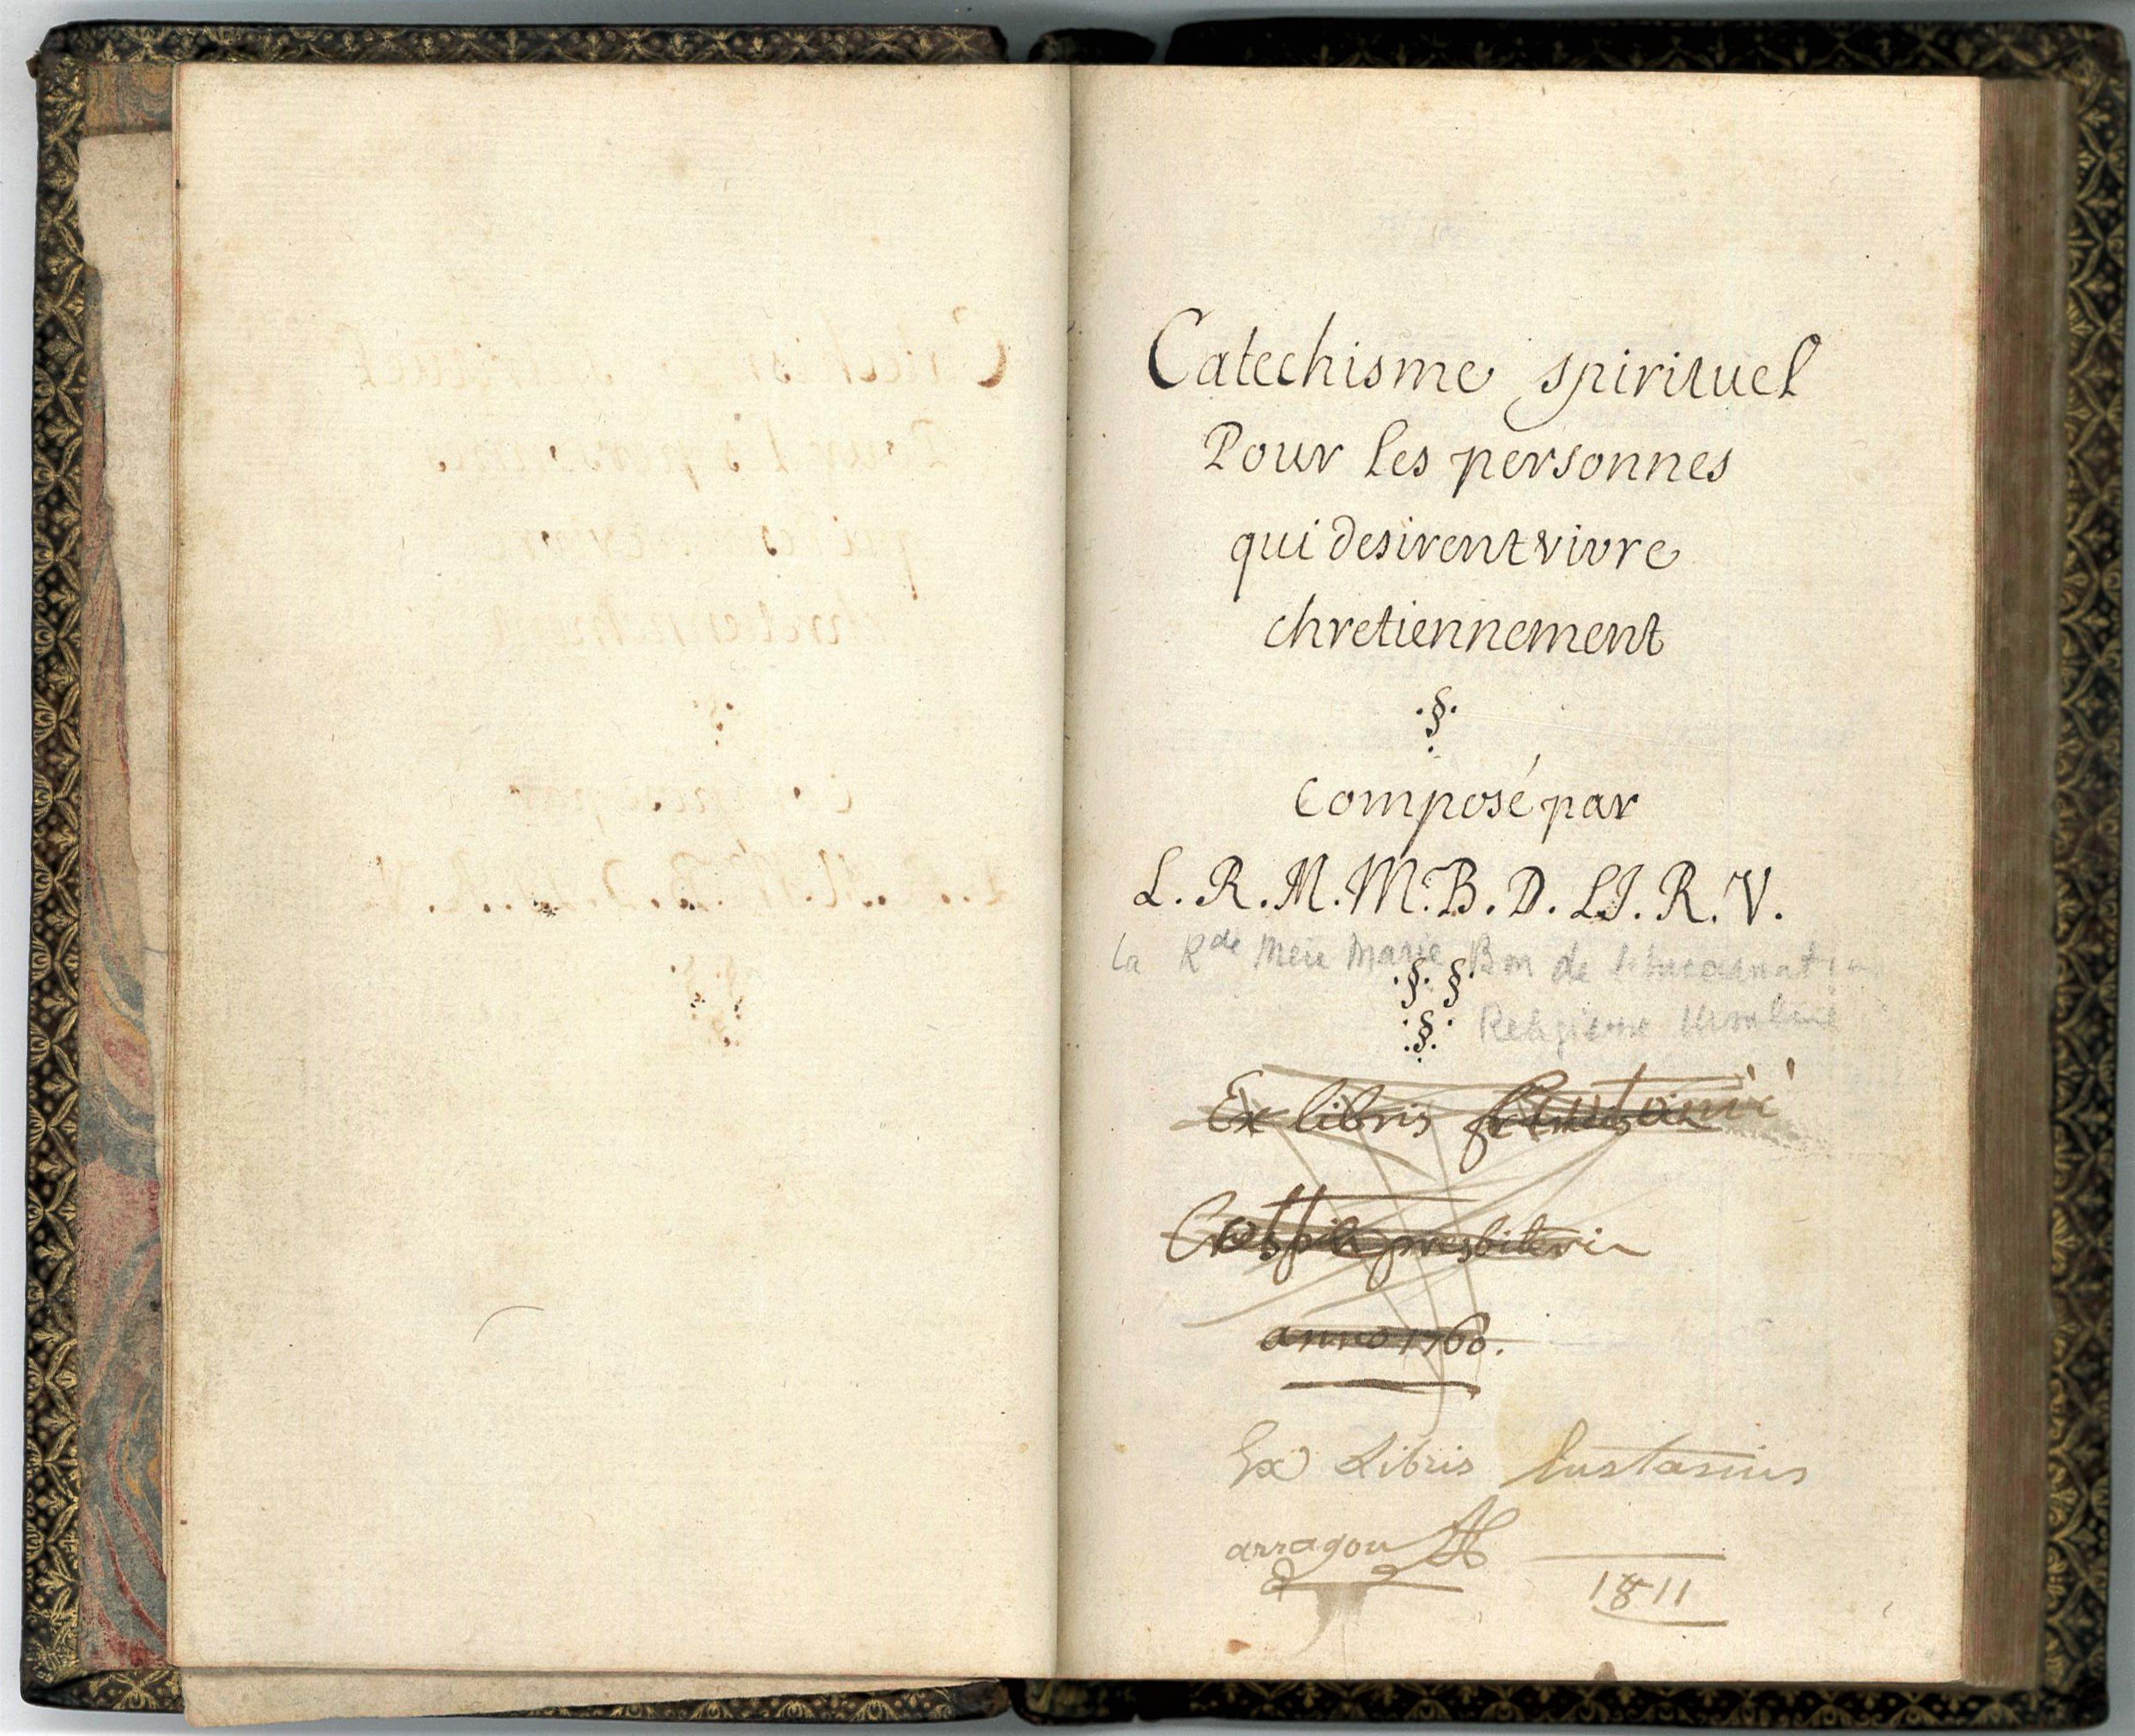 Catechisme spirituel
Pour les personnes
qui desirent vivre
chretiennement
.§.
Composé par
L. R. M. M. B. D. LJ. R. V.
La Rde Mere Marie Bon de l'Incarnation
§. §.
.§. Religieuse Ursuline
Ex libris
presbiteri
anno 1760.
Ex Libris Eustasius
arragon
1811